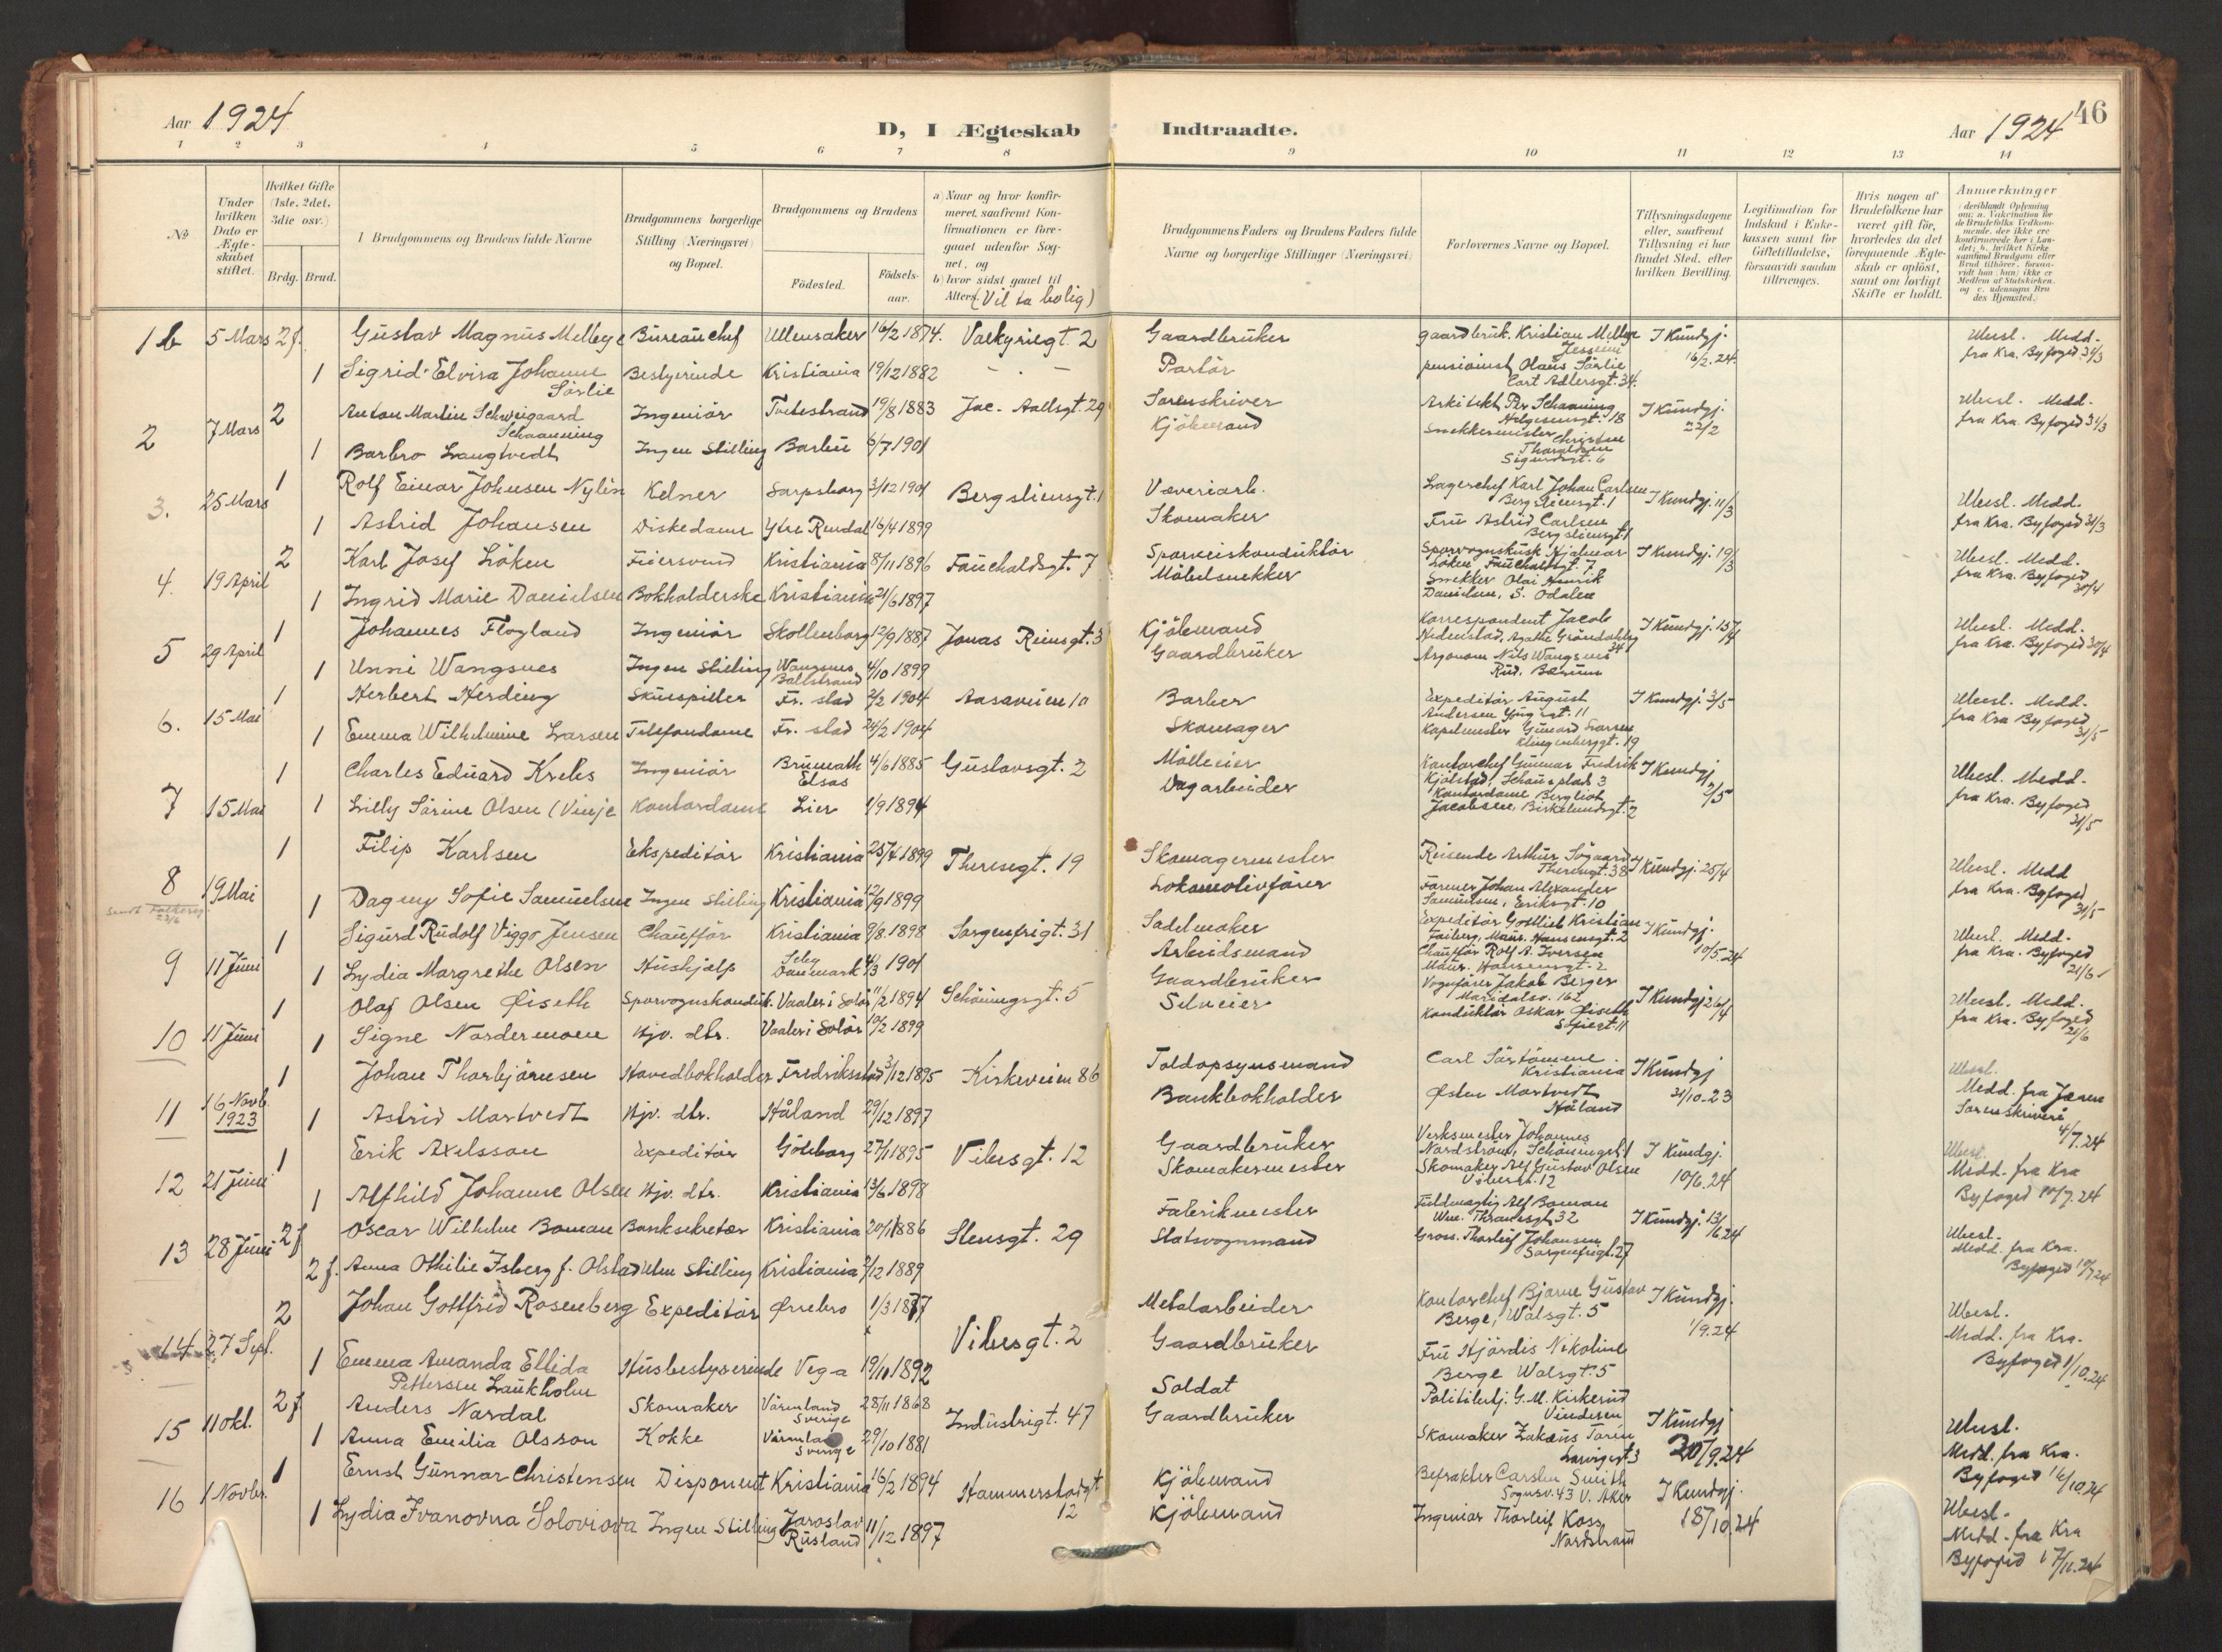 Aar 1924
D, I Ægteskab Indtraadte.
Aar 1924
46
1 2 3 4 5 6 7 8 9 10 11 12 13 14
№
Under hvilken Dato er Ægteskabet stiftet.
Hvilket Gifte (1ste, 2det, 3die osv.)
Brdg. Brud.
I Brudgommens og Brudens fulde Navne
Brudgommens borgerlige Stilling (Næringsvei) og Bopæl.
Brudgommens og Brudens
Fødested.
Fødsels-aar.
a) Naar og hvor konfirmeret, saafremt Konfirmationen er foregaaet udenfor Sognet, og
b) hvor sidst gaaet til Alters. (Vil ta bolig)
Brudgommens Faders og Brudens Faders fulde Navne og borgerlige Stillinger (Næringsvei)
Forlovernes Navne og Bopæl.
Tillysningsdagene eller, saafremt Tillysning ei har fundet Sted, efter hvilken Bevilling.
Legitimation for Indskud i Enkekassen samt for Giftetilladelse, forsaavidt saadan tiltrænges.
Hvis nogen af Brudefolkene har været gift før, hvorledes da det foregaaende Ægteskab er opløst, samt om lovligt Skifte er holdt.
Anmærkninger
1 b 5 Mars 2 f. Gustav Magnus Melbye Bureauchef Ullensaker 16/2 1874. Valkyriegt. 2 Gaardbruker gaardbruk. Kristian Melbye Jessheim I Kundgj. 16/2.24. Utenl. Medd. fra Kra. Byfoged 31/3
1 Sigrid Elvira Johanne Sörlie Bestyrerinde Kristiania 19/12 1882 - . - Partör pensionist Olaus Sörlie Cort Adlersgt. 34.
2 7 Mars 2 Anton Martin Schweigaard Schaanning Ingeniör Tvedestrand 19/8 1883 Jac. Aallsgt. 29 Sorenskriver Arkitekt Per Schaaning Helgesensgt. 18 I Kundgj. 22/2 Medd. fra Kra. Byfoged 31/3
1 Barbro Langtvedt Ingen Stilling Barbu 6/7 1901 Kjöbmand Snekkermester Christen Tharaldsen Sigurdsgt. 6
3. 25 Mars 1 Rolf Einar Johnsen Nylén Kelner Sarpsborg 3/12 1901 Bergsliensgt. 1 Væveriarb. Lagerchef Karl Johan Carlsen Bergsliensgt. 1 I Kundgj. 11/3 Medd. fra Kra. Byfoged 31/3
1 Astrid Johansen Diskedame Ytre Rendal 16/4 1899 Skomaker Fru Astrid Carlsen Bergsliensgt 1
4. 19 April 2 Karl Josef Löken Feiersvend Kristiania 8/11 1896 Fauchaldsgt. 7 Sporveiskonduktör Sporvognskusk Hjalmar Löken Fauchaldsgt. 7 I Kundgj. 19/3 Medd. fra Kra. Byfoged 30/4
1 Ingrid Marie Danielsen Bokholderske Kristiania 21/6 1897 Möbelsnekker Snekker Olai Henrik Danielsen, S. Odalen
5 29 April 1 Johannes Flogland Ingeniör Skollenborg 12/9 1887 Jonas Reinsgt. 3 Kjöbmand Korrespondent Jacob Hedenstad, Agathe Gröndahlsg 34 I Kundgj. 15/4 Medd. fra Kra. Byfoged 30/4
1 Unni Wangsnes Ingen Stilling Wangsnes Balestrand 4/10 1899 Gaardbruker Argonom Nils Wangsnes Rud, Bærum
6. 15 Mai 1 Herbert Herding Skuespiller Fr. stad 2/2 1904 Aasaveien 10 Barber Expeditör August Andersen Yngsgt. 11 I Kundgj. 3/5 Medd. fra Kra Byfoged 31/5
1 Emma Wilhelmine Larsen Telefondame Fr. stad 24/2 1904 Skomager Kapelmester Gunard Larsen Klingenberggt. 19
7 15 Mai 1 Charles Eduard Krebs Ingeniör Brumath Elsas 4/6 1885 Gustavsgt. 2 Mölleeier Kontorchef Gunnar Fredrik Kjölstad, Schous plads 3 I Kundgj. 2/5 Medd. fra Kra. Byfoged 31/5
1 Lilly Sörine Olsen (Vinje Kontordame Lier 1/9 1894 Dagarbeider Kontordame Bergliot Jacobsen, Birkelundsgt. 2
8 19 Mai 1 Filip Karlsen Ekspeditör Kristiania 25/4 1899 Theresegt. 19 Skomagermester Reisende Arthur Sögaard Theresgt. 38 I Kundgj. 25/4 Medd fra Kra. Byfoged 31/5
1 Dagny Sofie Samuelsen Ingen Stilling Kristiania 12/9 1899 Lokomotivförer Farmer Johan Alexander Samuelsen, Eriksgt. 10
9 11 Juni 1 Sigurd Rudolf Viggo Jensen Chaufför Kristiania 9/8. 1898 Sorgenfrigt. 31 Sadelmaker Expeditör Gottlieb Kristian Faiberg, Maur. Hansensgt. 2 I Kundgj. 10/5.24 Medd. fra Kra. Byfoged 21/6
1 Lydia Margrethe Olsen Hushjælp Danmark 4/3 1901 Arbeidsmand Chaufför Rolf A. Iversen Maur. Hansensgt. 2
10 11 Juni 1 Olaf Olsen Øiseth Sporvognskonduk. Vaaler i Solör 11/2 1894 Schöningsgt. 5 Gaardbruker Vognförer Jakob Berger Maridalsv. 162 I Kundgj 26/4 Medd. fra Kra. Byfoged 21/6
1 Signe Nordermoen Hjv. dtr. Vaaler i Solör 10/2 1899 Selveier Konduktör Oskar Øiseth Sofiegt. 11
11 16 Novb. 1923 1 Johan Thorbjörnsen Hovedbokholder Fredriksstad 3/12 1895 Kirkeveien 86 Toldopsynsmand Carl Kristiania I Kundgj 31/10.23 Medd. fra Jæren Sorenskriveri 4/7.24
1 Astrid Mortvedt Hjv. dtr. Håland 29/12 1897 Bankbokholder Østen Mortvedt Håland
12 21 Juni 1 Erik Axelsson Expeditör Göteborg 27/1 1895 Vibesgt. 12 Gaardbruker Verksmester Johannes Nordström, Schöningsgt 1 I Kundgj. 10/6.24 Medd. fra Kra Byfoged 10/7.24
1 Alfhild Johanne Olsen Hjv. dtr. Kristiania 13/6 1898 Skomakermester Skomaker Alf Gustav Olsen Vibesgt. 12
13 28 Juni 2 f Oscar Wilhelm Boman Banksekretær Kristiania 20/1 1886 Stensgt. 29 Fabrikmester Fuldmægtig Alf Boman Wm. Thranesgt 32 I Kundgj. 13/6 24 Medd. fra Kra. Byfoged 10/7 24
2 f. Anna Othilie Isberg f. Olstad Uten Stilling Kristiania 2/12 1889 Statsvognmand Gross. Thorleif Johansen Sorgenfrigt. 27
14 27 Sept. 2 Johan Gottfrid Rosenberg Expeditör Ørrebro 1/3 1877 Vibesgt. 2 Metalarbeider Kontorchef Bjarne Gustav Berge, Walsgt. 5 I Kundgj. 1/9.24 Medd. fra Kra. Byfoged 1/10.24
1 Emma Amanda Ellida Pettersen Laukholm Husbestyrerinde Vega 19/10 1892 Gaardbruker Fru Hjördis Nikoline Berge Walsgt. 5
15 11 okt. 2 f Anders Nordal Skomaker Värmland Sverige 28/11 1868 Industrigt. 47 Soldat Politibetj. G. M. Kirkerud Vinderen I Kundgj 20/9.24 Medd. fra Kra. Byfoged 14/10.24
1 Anna Emilia Olsson Kokke Värmland Sverige 29/10 1881 Gaardbruker Skomaker Zakæus
16 1 Novbr. 1 Ernst Gunnar Christensen Disponent Kristiania 16/2 1894 Hammerstadgt 12 Kjöbmand Befrakter Carsten Smith Sognsv. 43 V. Aker I Kundgj. 18/10.24 Medd. fra Kra Byfoged 17/11.24
1 Lydia Ivanovna Soloviova Ingen Stilling Jaroslav Rusland 11/12 1897 Kjöbmand Ingeniör Thorleif Koss, Nordstrand